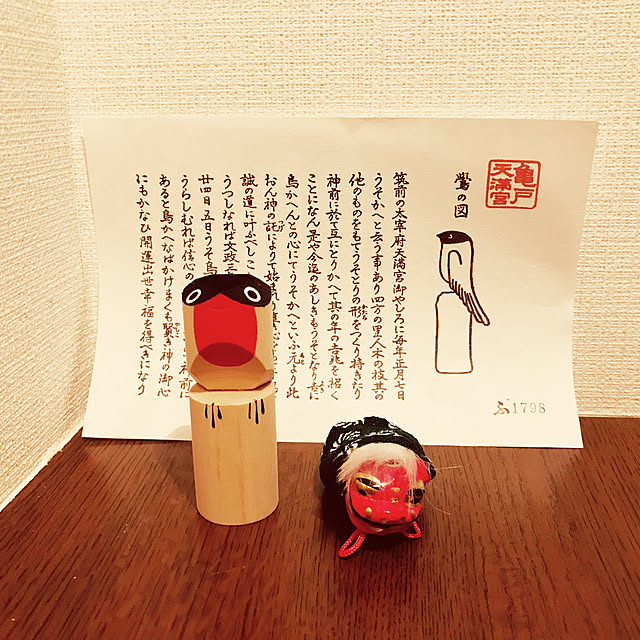 亀戸
天満宮
鷽の図
筑前の太宰府天満宮御やしろに毎年正月七日
うそかへと云う事あり四方の里人木の枝其の
他のものをもてうそどりの形をつくり持きたり
神前に於て互にとりかへて其の年の吉兆を招く
ことになん是や今迄のあしきもうそとなり吉に
鳥かへんとの心にてうそかへといふ元より此
おん神の託によりて始
誠の道に叶ふべしこ
うつしなれば文政三
廿四日五日うそ鳥
うらしむれば信心の 前に
あると鳥かへなばかけまくも賢き神の御心
にもかなひ開運出世幸福を得べきになり
1798